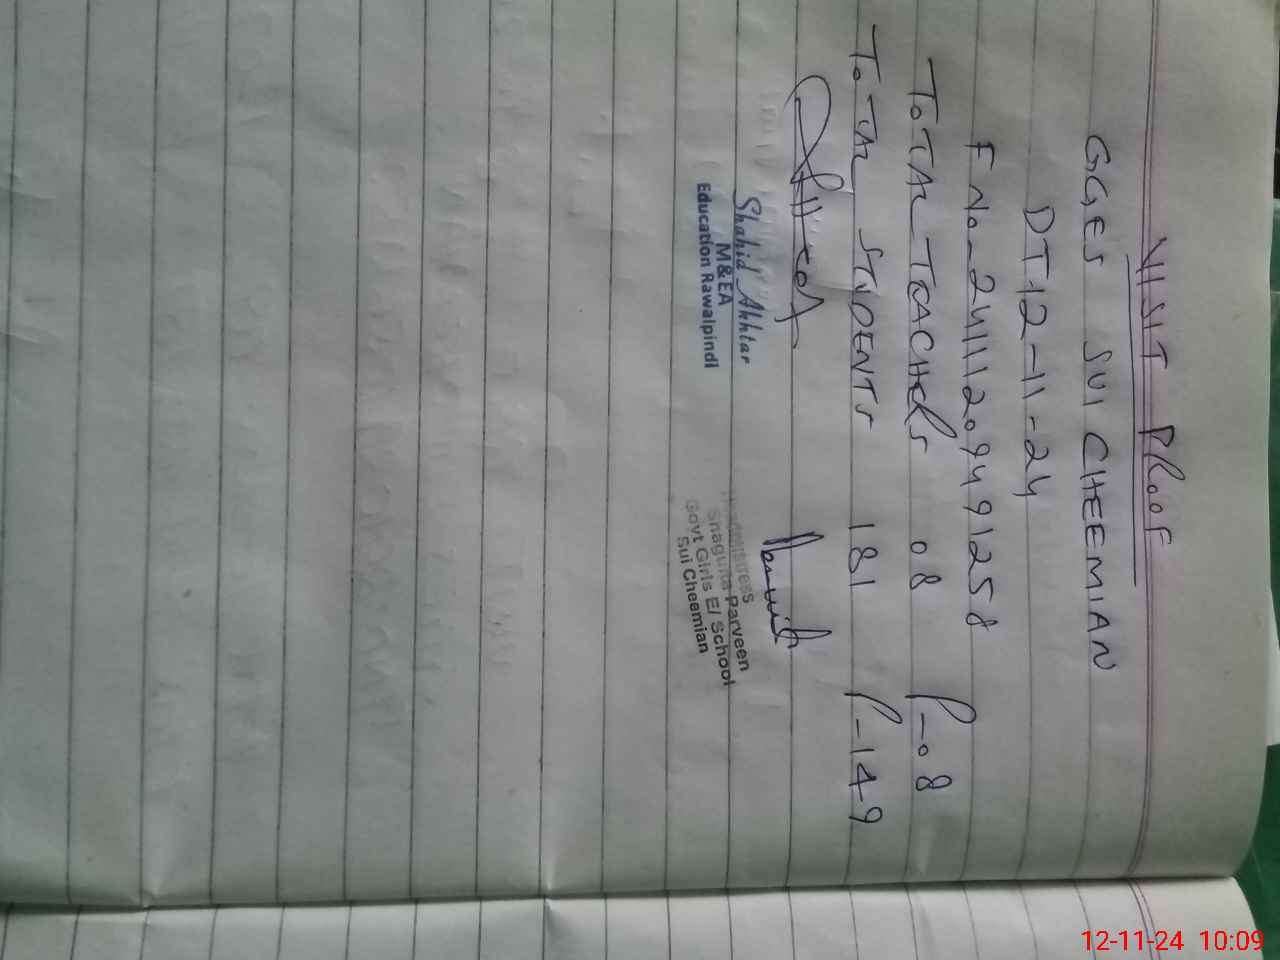 VISIT PROOF
GGES SUI CHEEMIAN
DT 12-11-24
F No-24111209491258
TOTAL TOACHERS 08 P-08
TOTAL STUDENTS 181 P-149
Shahid Akhtar
M&EA
Education Rawalpindi
Headmistress
Shagufta Parveen
Govt Girls E/ School
Sui Cheemian
12-11-24 10:09